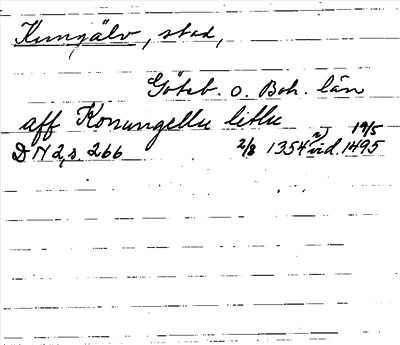 Kungälv, stad,
Göteb. o. Boh. län
aff Konungellu litlu
DN 2, s. 266 2/8 1354 vid. 19/5 1495